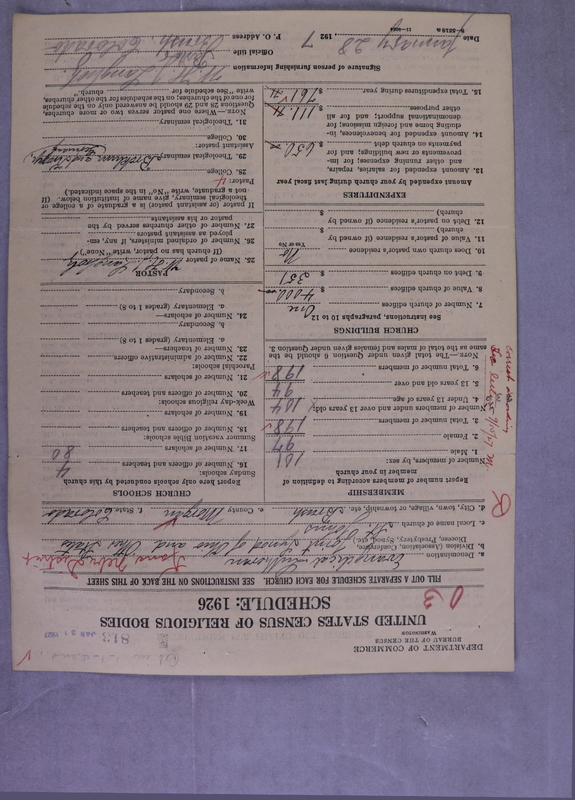 DEPARTMENT OF COMMERCE
BUREAU OF THE CENSUS
WASHINGTON
813 JAN 31 1927
UNITED STATES CENSUS OF RELIGIOUS BODIES
SCHEDULE: 1926
03
FILL OUT A SEPARATE SCHEDULE FOR EACH CHURCH. SEE INSTRUCTIONS ON THE BACK OF THIS SHEET
a. Denomination Evangelical Lutheran
b. Division (Association, Conference, Diocese, Presbytery, Synod, etc.) Joint Synod of Ohio and Other States
Kans Nebr District
c. Local name of church St. Johns
d. City, town, village, or township, etc. Brush e. County Morgan f. State Colorado
MEMBERSHIP
Report number of members according to definition of member in your church
Number of members, by sex:
1. Male 101
2. Female 97
3. Total number of members 198
Number of members under and over 13 years old:
4. Under 13 years of age 104
5. 13 years old and over 94
6. Total number of members 198
NOTE.—The total given under Question 6 should be the same as the total of males and females given under Question 3.
CHURCH BUILDINGS
See instructions, paragraphs 10 to 12
7. Number of church edifices One
8. Value of church edifices $ 4000
9. Debt on church edifices $ 351
10. Does church own pastor's residence No
Yes or No
11. Value of pastor's residence (if owned by church) $
12. Debt on pastor's residence (if owned by church) $
EXPENDITURES
Amount expended by your church during last fiscal year
13. Amount expended for salaries, repairs, and other running expenses; for improvements or new buildings; and for payments on church debt $ 650
14. Amount expended for benevolences, including home and foreign missions; for denominational support; and for all other purposes $ 111.71
15. Total expenditures during year $ 761.71
CHURCH SCHOOLS
Report here only schools conducted by this church
Sunday schools:
16. Number of officers and teachers 4
17. Number of scholars 80
Summer vacation Bible schools:
18. Number of officers and teachers
19. Number of scholars
Week-day religious schools:
20. Number of officers and teachers
21. Number of scholars
Parochial schools:
22. Number of administrative officers
23. Number of teachers—
a. Elementary (grades 1 to 8)
b. Secondary
24. Number of scholars—
a. Elementary (grades 1 to 8)
b. Secondary
PASTOR
25. Name of pastor
(If church has no pastor, write "None")
26. Number of ordained ministers, if any, employed as assistant pastors
27. Number of other churches served by the pastor or his assistants
If pastor (or assistant pastor) is a graduate of a college or theological seminary, give name of institution below. (If not a graduate, write "No" in the space indicated.)
Pastor: 4
28. College
29. Theological seminary
Germany
Assistant pastor:
30. College
31. Theological seminary
NOTE.—Where one pastor serves two or more churches, Questions 28 and 29 should be answered only on the schedule for one of the churches; on the schedules for the other churches, write "See schedule for church."
Signature of person furnishing information
Official title Pastor
P. O. Address Brush, Colorado
Date January 28 1927